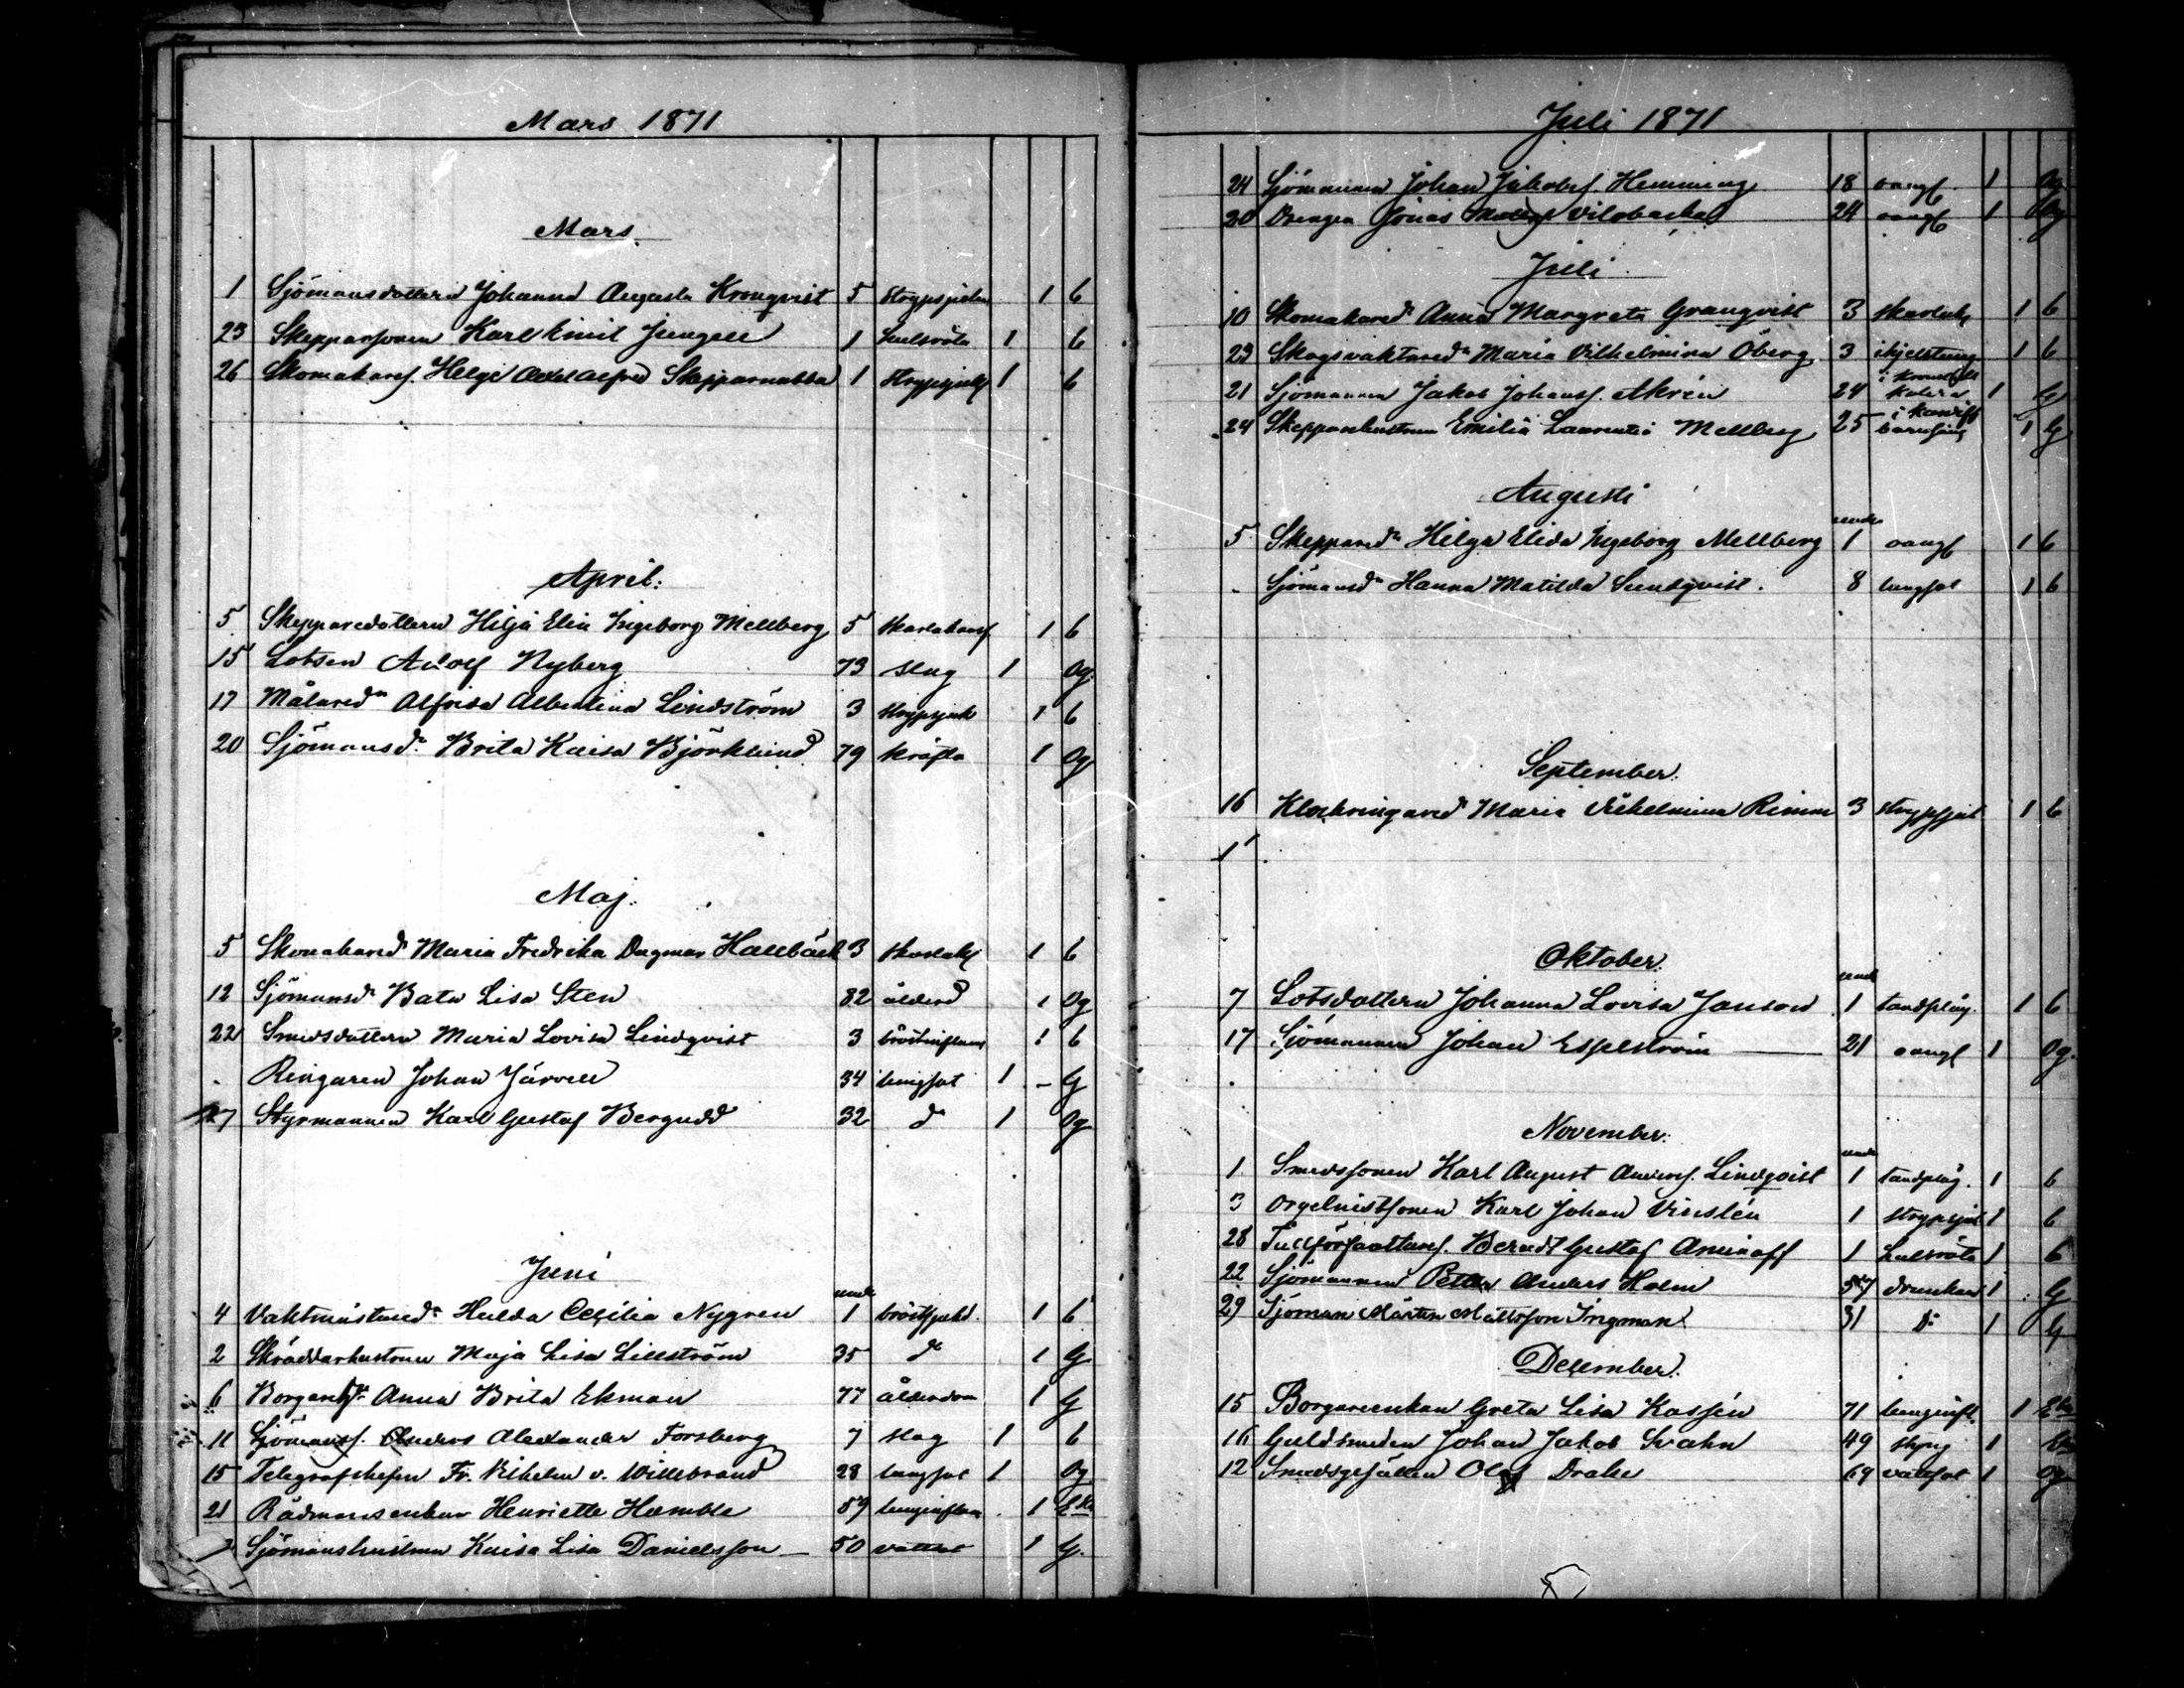 Mars 1871
Mars
1 Sjömansdottern Johanna Augusta Kronqvist 5 strypsjukan 1 b
23 Skepparsonen Karl Emil Jungell 1 halsröta 1 b
26 Skomakares. Helge Axel Alfred Skepparnabba 1 strypsjuk 1 b
April:
5 Skepparedottern Hilja Elin Ingeborg Mellberg 5 skarlakansf 1 b
15 Lotsen Adolf Nyberg 73 slag 1 Og.
17 Målared:n Alfrida Albertina Lindström 3 strypsjuk 1 b
20 Sjömansd:r Brita Kaisa Björklund 79 kräfta 1 Og
Maj.
5 Skomakared:r Maria Fredrika Dagmar Hallbäck 3 skarlak 1 b
12 Sjömansd:r Bata Lisa Sten 82 ålderd 1 Og
22 Smedsdottern Maria Lovisa Lindqvist 3 bröstinflam 1 b
Ringaren Johan Järvell 34 lungsot 1 - G
27 Styrmannen Karl Gustaf Bergudd 32 d:o 1 Og
Juni
4 Vaktmästared:r Hulda Cecilia Nygren 1 bröstsjukd. 1 b
2 Skräddarhustrun Maja Lisa Lillström 35 d:o 1 G
6 Borgareh:u Anna Brita Ekman 77 ålderdom 1 G
11 Sjömanss. Anders Alexander Forsberg 7 slag 1 b
15 Telegrafchefen Fr. Vilhelm v. Willebrand 28 lungsot 1 Og
21 Rådmansenkan Henriette Hæmble 59 lunginflam. 1 Eka
Sjömanshustrun Kaisa Lisa Danielsson 50 vattsot 1 G.
Juli 1871
24 Sjömannen Johan Jakobss. Hemming 18 oangf. 1 Og.
20 Drengen Jonas Vilobacka 24 oangf 1 Og
Juli.
10 Skomakared:r Anna Margreta Granqvist 3 skarlak 1 b
23 Skogsvaktared:r Maria Vilhelmina Öberg 3 ihjelstung 1 b
21 Sjömannen Jakob Johanss. Akrén 24 i Kronstadt kolera 1 G
24 Skepparehustrun Emilia Laurentia Mellberg 25 barnsäng 1 G
Augusti
mån
5 Skeppared:r Hilja Elida Ingeborg Mellberg 1 oangf 1 b
Sjömansd:r Hanna Matilda Sundqvist. 8 lungsot 1 b
September.
16 Klockringared:r Maria Vilhelmina Rimm 3 strypsjuk 1 b
1
Oktober.
7 Lotsdottern Johanna Lovisa Janson 1 tandplåg. 1 b
17 Sjömannen Johan Espelström 21 oangf 1 Og.
November.
1 Smedssonen Karl August Anderss. Lindqvist 1 tandplåg. 1 b
3 Orgelnistsonen Karl Johan Virstén 1 strypsjuk 1 b
28 Tullförvaltares. Berndt Gustaf Aminoff 1 halsröta 1 b
22 Sjömannen Petter Anders Holm 57 drunknad 1 G
29 Sjöman Mårten Mattsson Ingman 31 D:o 1 G
December.
15 Borgareenkan Greta Lisa Kassén 71 lunginfl. 1 Eka
16 Guldsmeden Johan Jakob Svahn 49 styng 1
12 Smedsgesällen Olof Drake 69 vattsot 1 Og